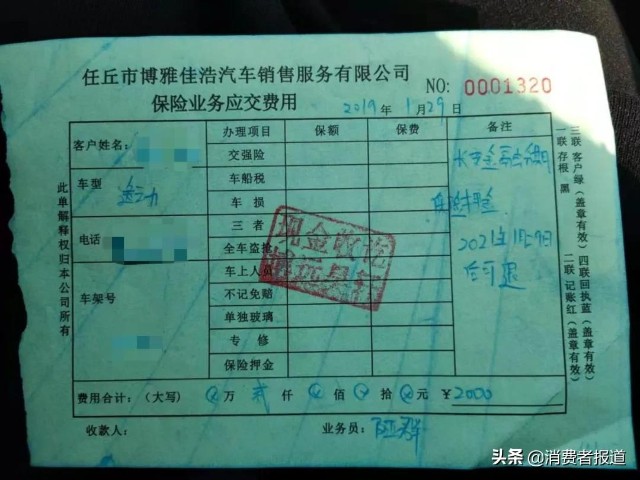 任丘市博雅佳浩汽车销售服务有限公司
NO: 0001320
保险业务应交费用
2019年1月29日
客户姓名:
办理项目 保额 保费 备注
交强险
车型 逸动
车船税
车损
电话
三者
全车盗抢
2021年1月29日
后可退
车上人员
车架号
不记免赔
单独玻璃
专修
保险押金
费用合计:(大写) 万 贰 仟 佰 拾 元 ¥2000
收款人: 业务员:
现金收讫
此单解释权归本公司所有
一联 存根 黑
二联 记账红(盖章有效)
三联 客户绿(盖章有效)
四联回执蓝(盖章有效)
头条 @消费者报道